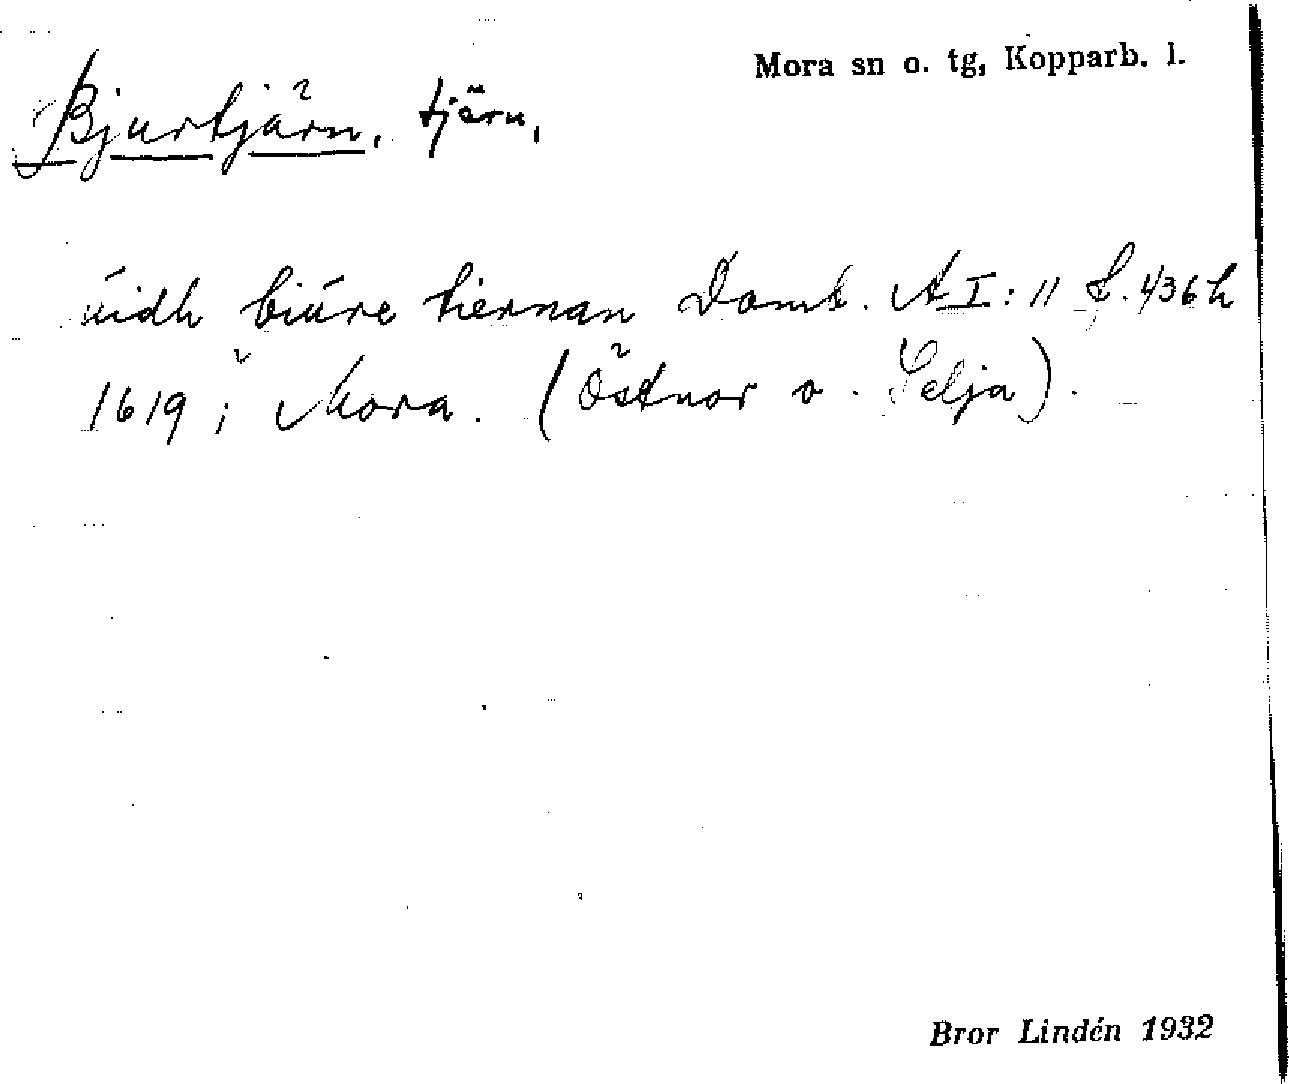 Mora sn o. tg, Kopparb. l.
Bjurtjärn, tjärn,
úidh biúre tiernan Domb. A I: 11 f. 436 h
1619, i Mora. (Östnor o. Selja).
Bror Lindén 1932